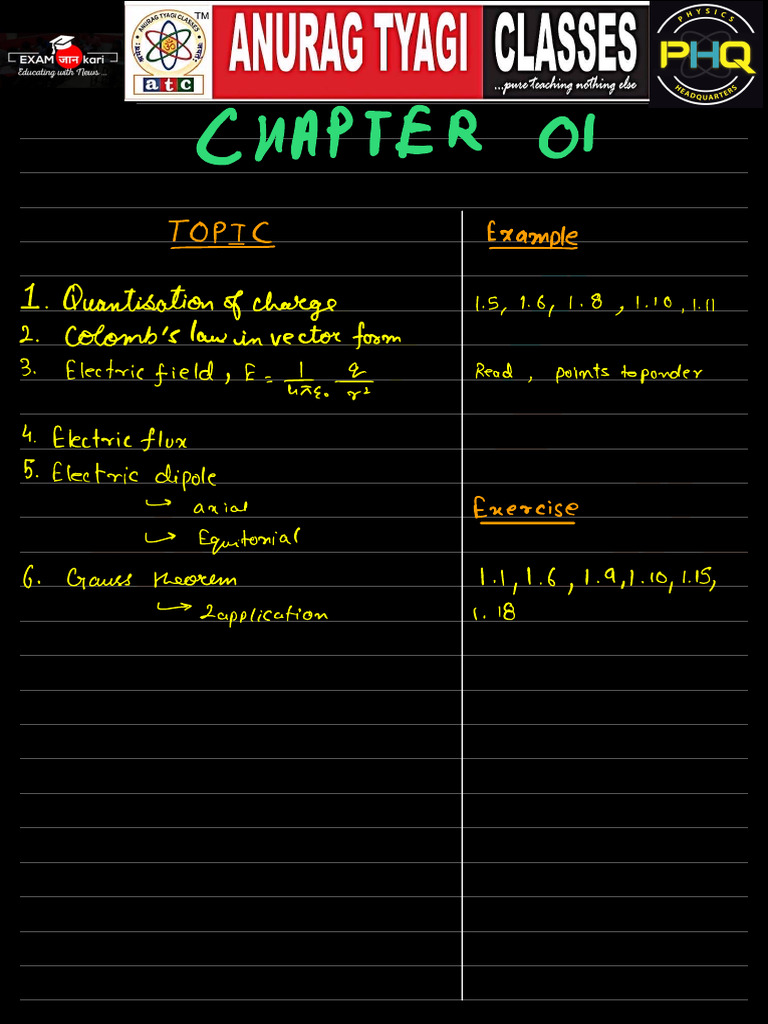 EXAM जान kari
Educating with News ...
ANURAG TYAGI CLASSES
atc
TM
ANURAG TYAGI CLASSES
...pure teaching nothing else
PHYSICS
PHQ
HEADQUARTERS
CHAPTER 01
TOPIC
1. Quantisation of charge
2. Colomb's law in vector form
3. Electric field, E = 1/4πε₀ q/r²
4. Electric flux
5. Electric dipole
↳ axial
↳ Equitorial
6. Gauss theorem
↳ 2 application
Example
1.5, 1.6, 1.8, 1.10, 1.11
Read, points to ponder
Exercise
1.1, 1.6, 1.9, 1.10, 1.15,
1.18